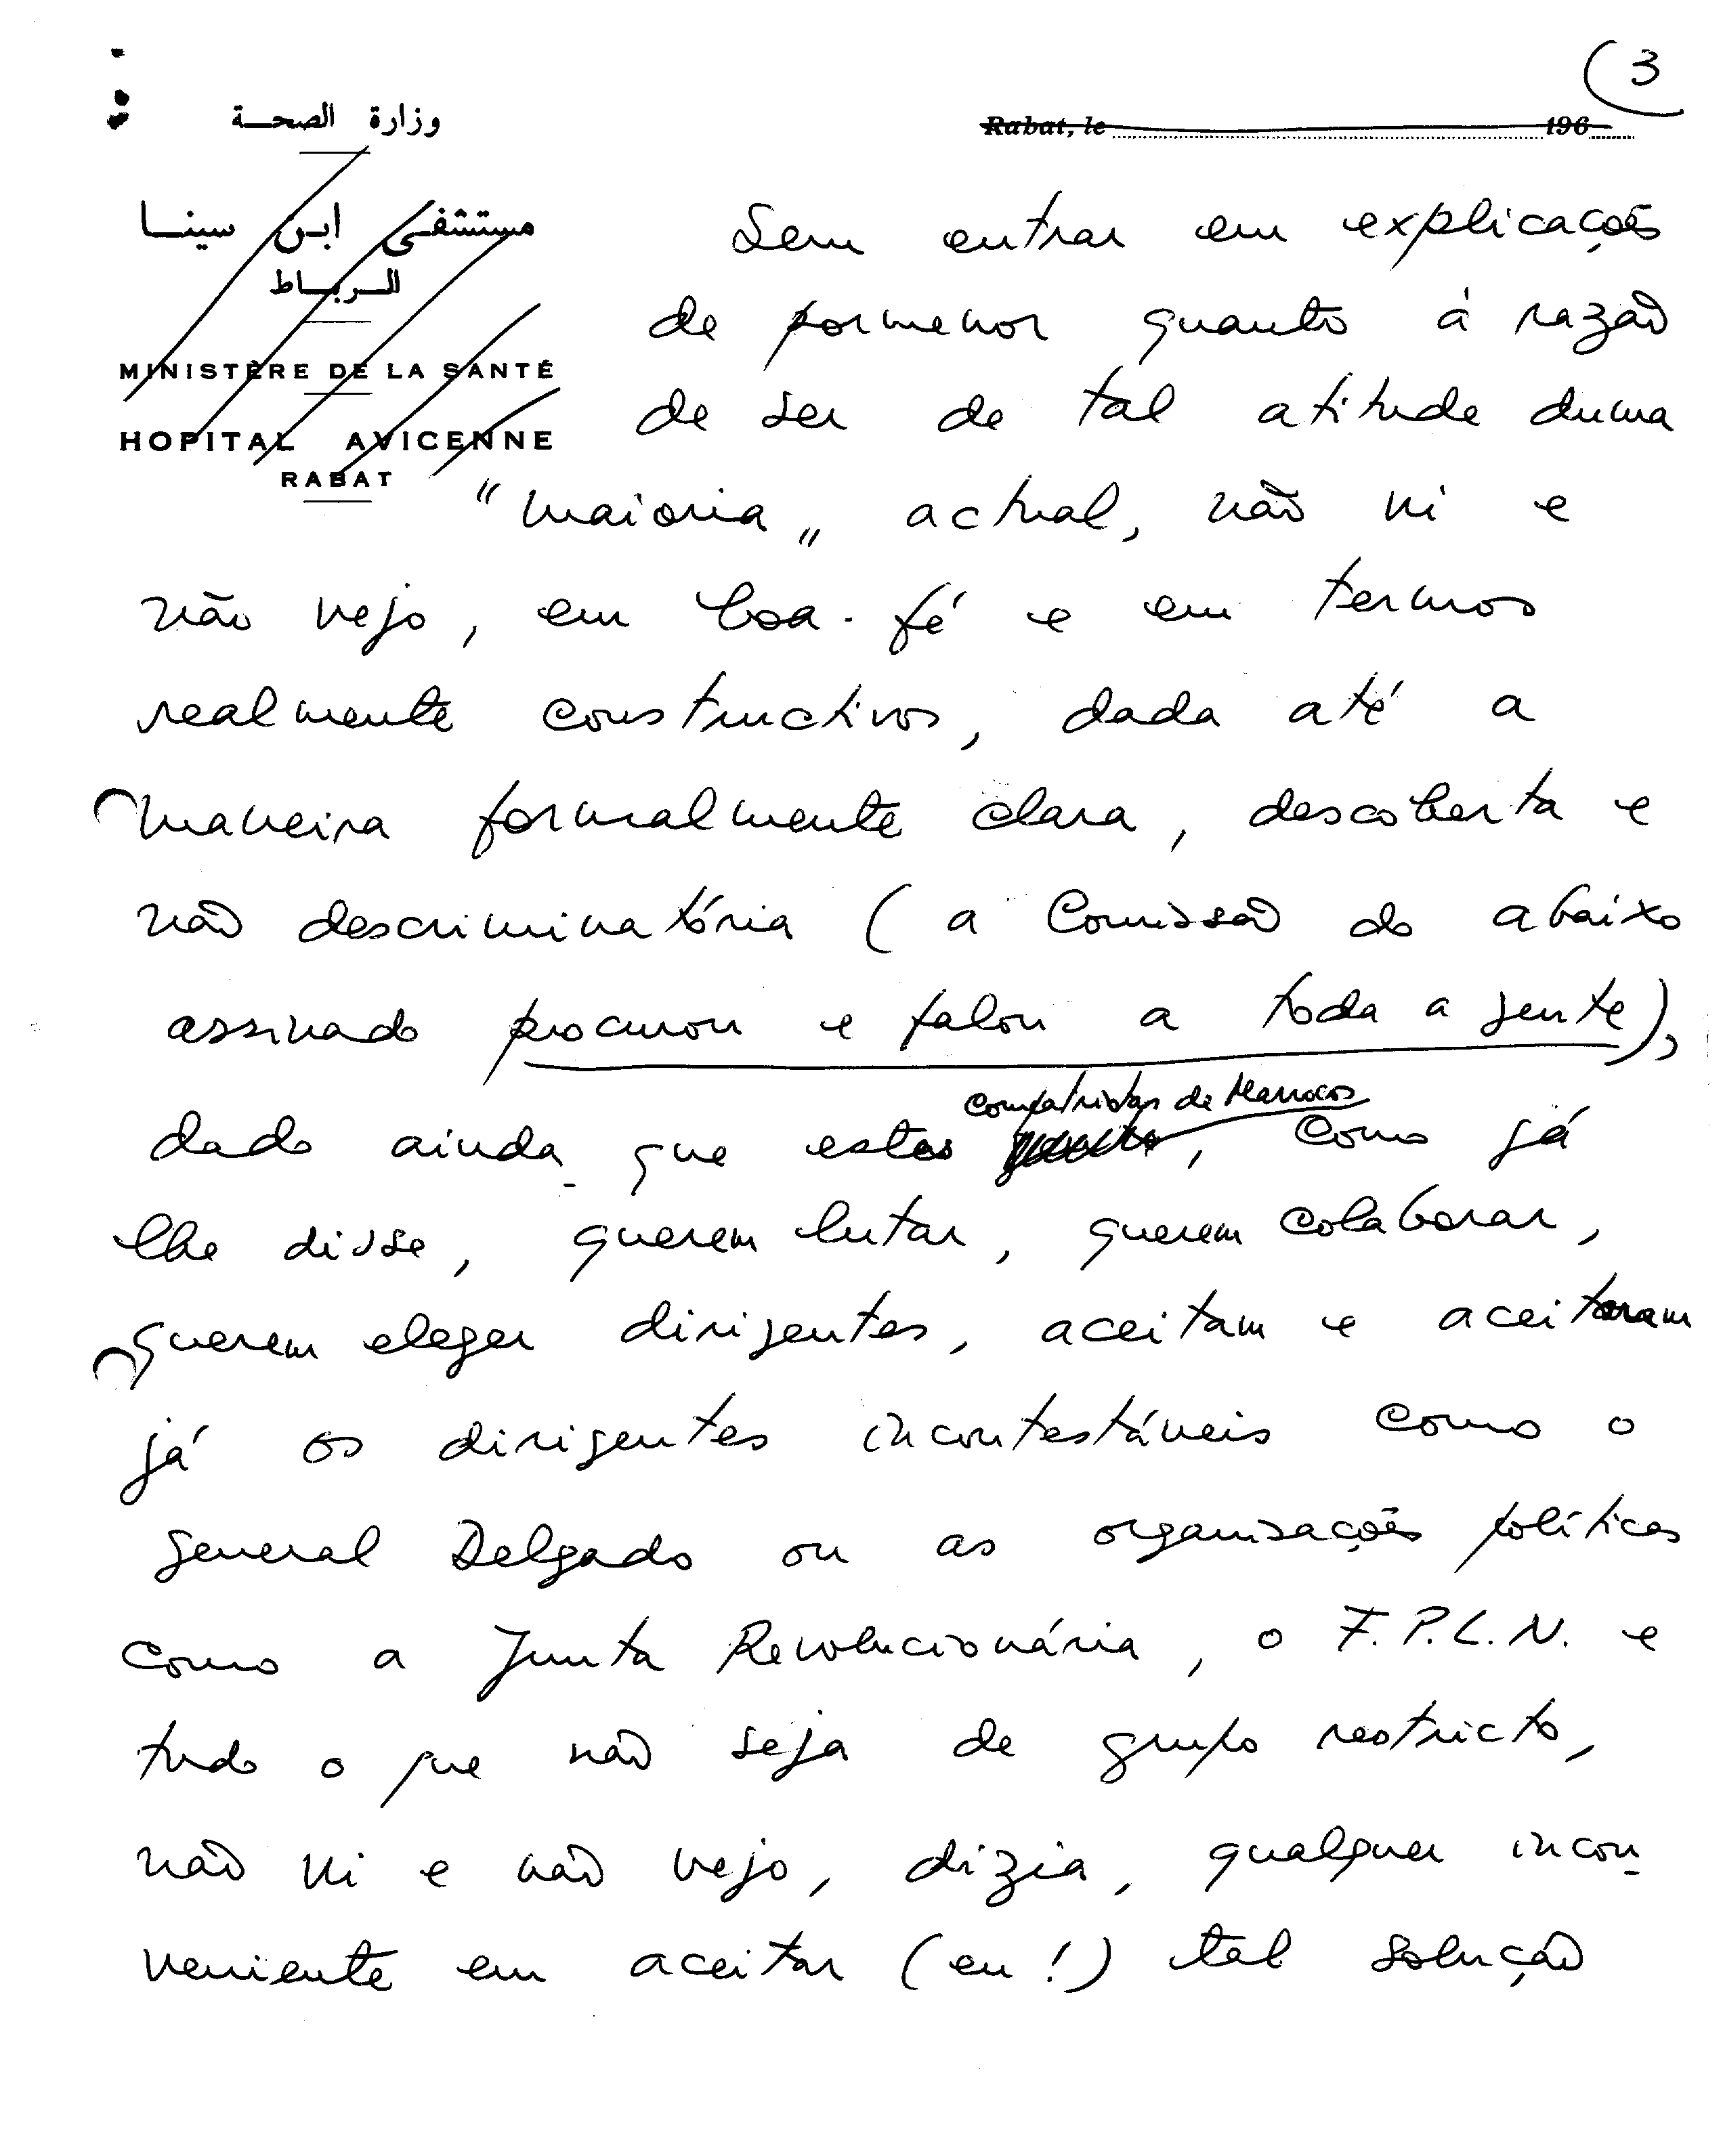 3
وزارة الصحة
Rabat, le 196
مستشفى ابن سينا
الرباط
MINISTÈRE DE LA SANTÉ
HOPITAL AVICENNE
RABAT
Sem entrar em explicações
de pormenor quanto á razão
de ser de tal atitude duma
"maioria" actual, não vi e
não vejo, em boa-fé e em termos
realmente constructivos, dada até a
maneira formalmente clara, descoberta e
não descriminatória (a Comissão do abaixo
assinado procurou e falou a toda a gente),
compatriotas de Marrocos
dado ainda que estes , como já
lhe disse, querem lutar, querem colaborar,
querem eleger dirigentes, aceitam e aceitaram
já os dirigentes incontestáveis como o
general Delgado ou as organisações políticas
como a Junta Revolucionária, o F.P.L.N. e
tudo o que não seja de grupo restricto,
não vi e não vejo, dizia, qualquer incon-
veniente em aceitar (eu!) tal solução